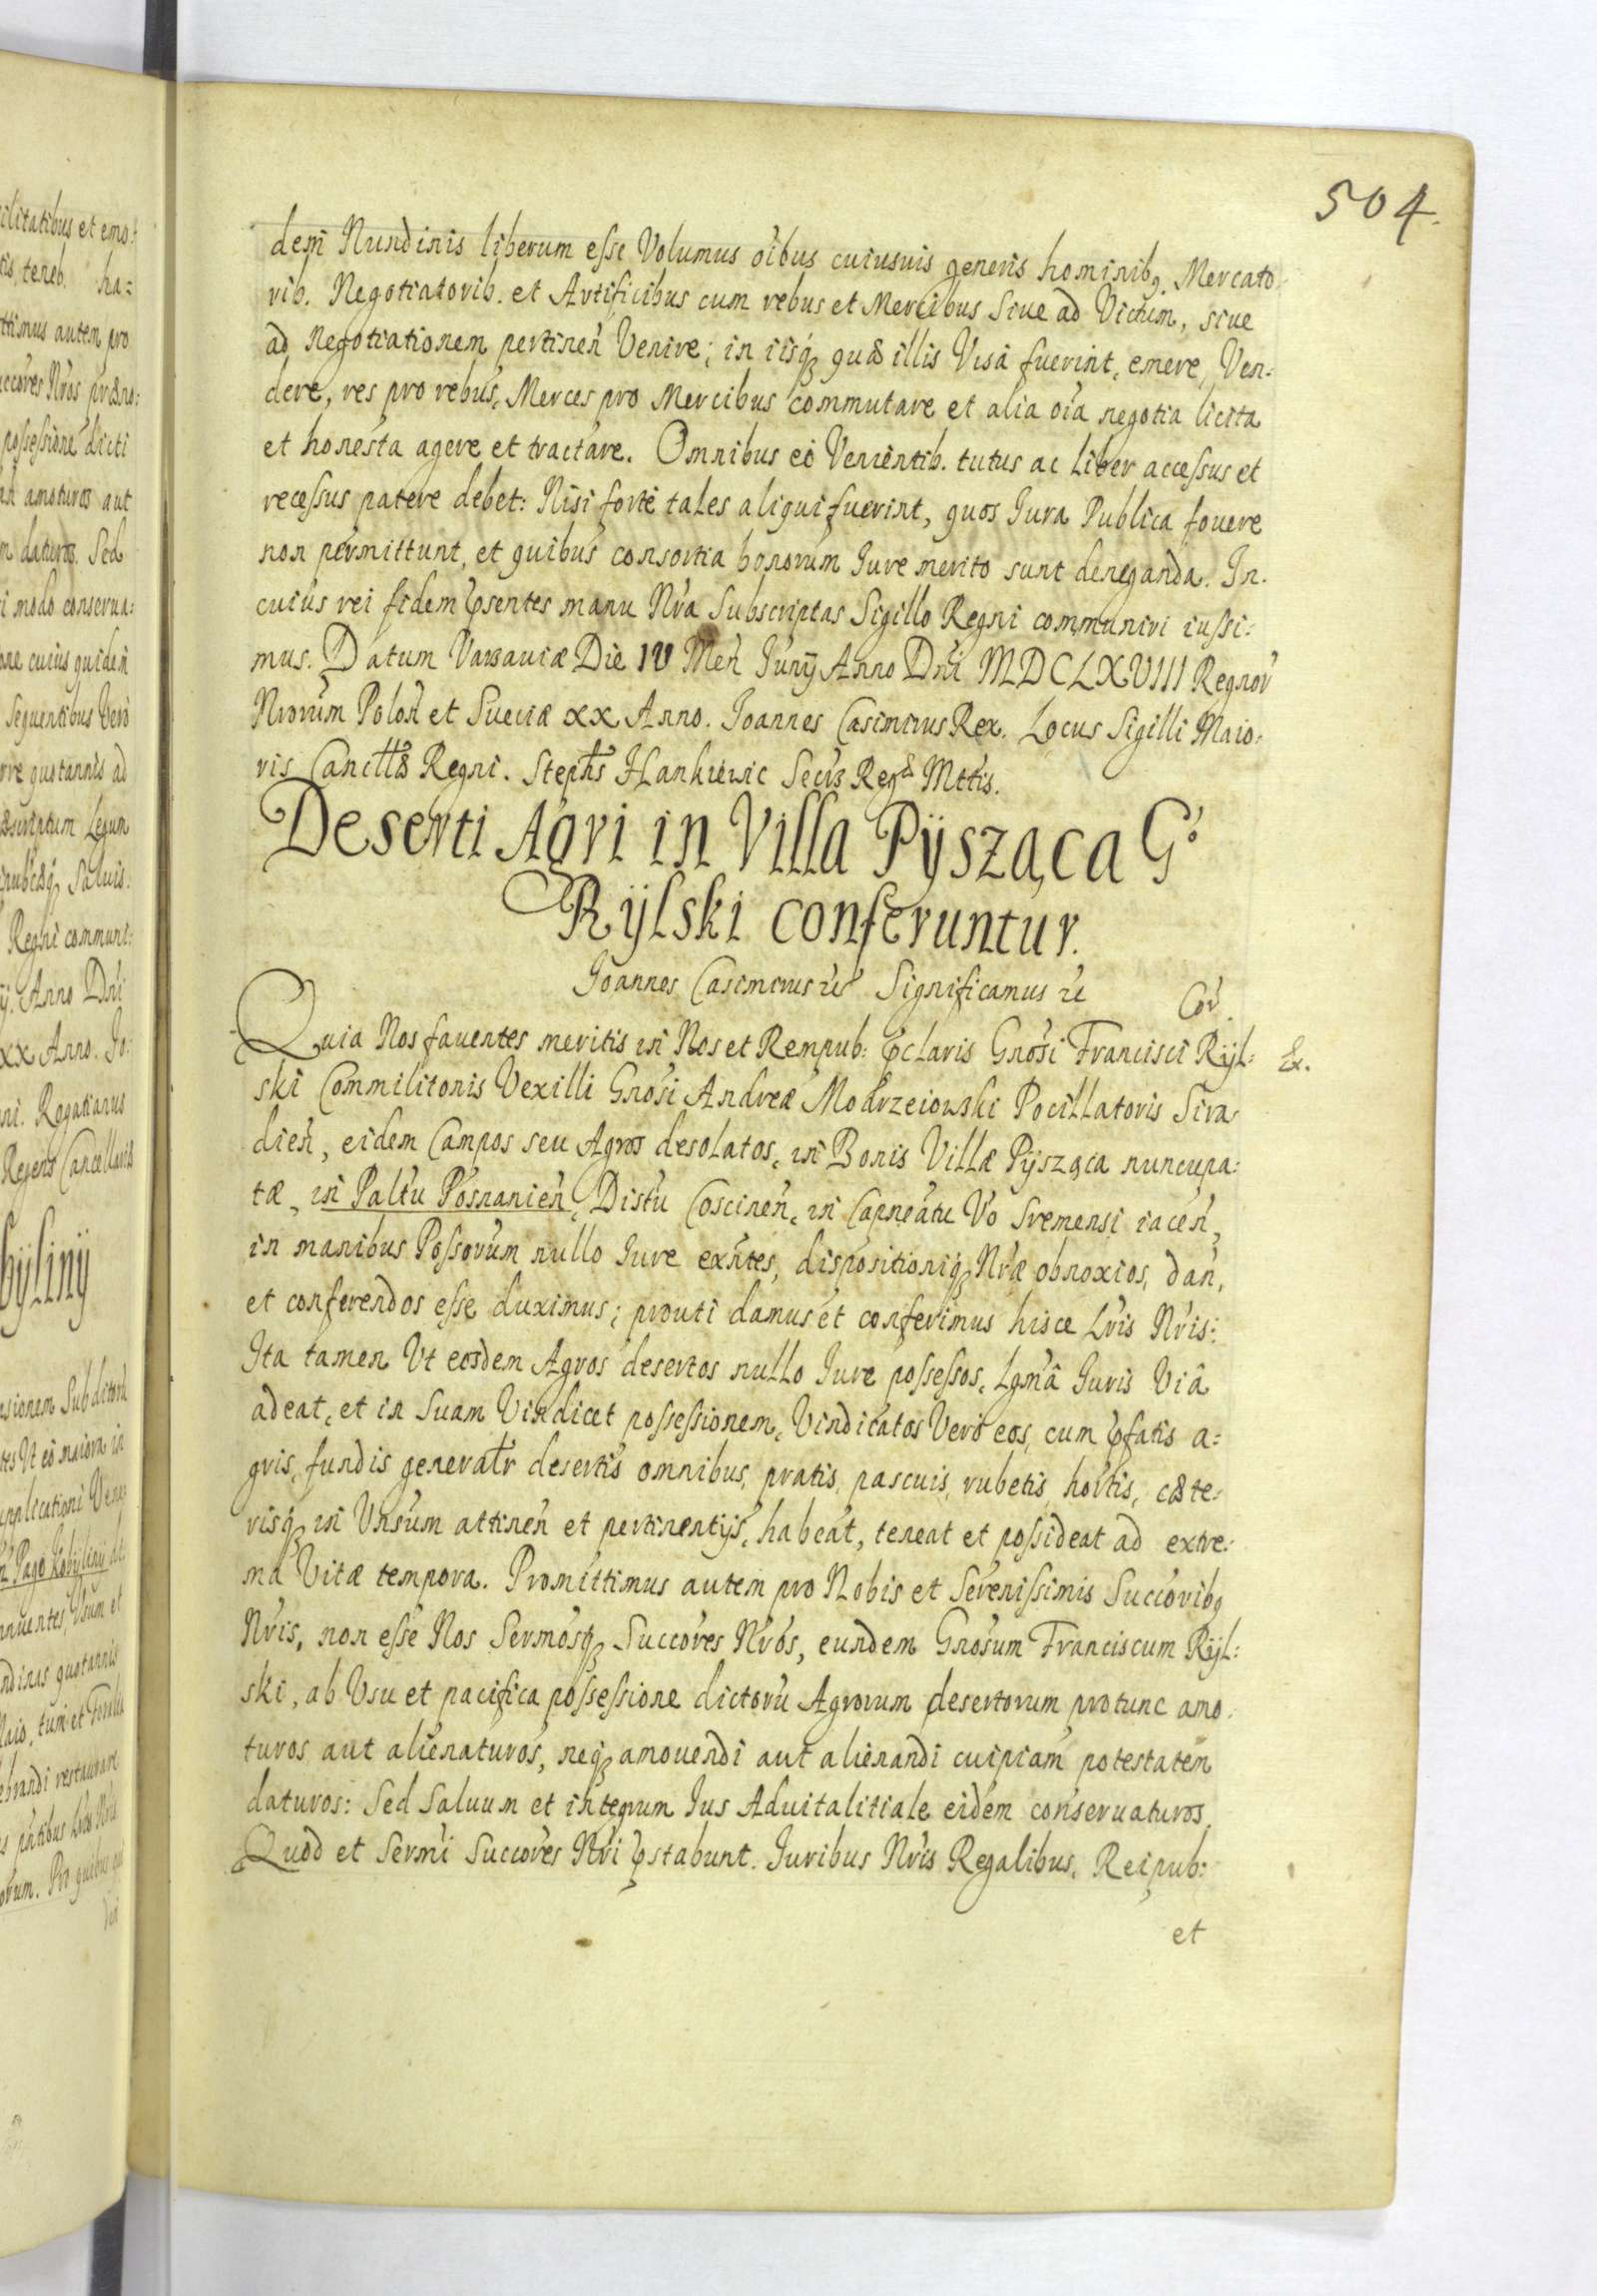 504.
dem̄ Nundinis liberum esse Volumus oībus cuiusuis generis hominibq. Mercato
rib. Negotiatorib. et Artificibus cum rebus et Mercibus Siue ad Victum, siue
ad Negotiationem pertinen̄ Venire; in iisq́ quæ illis Visâ fuerint, emere, Ven:
dere, res pro rebus, Merces pro Mercibus commutare et alia oīa negotia licita
et honesta agere et tractare. Omnibus eò Venientib. tutus ac Liber accessus et
recessus patere debet: Nisi forte tales aliqui fuerint, quos Jura Publica fouere
non permittunt, et quibus consortia bonorum Jure merito sunt deneganda. In.
cuius rei fidem p̄sentes manu Nr̄a Subscriptas Sigillo Regni communiri iussi:
mus. Datum Varsauiæ Die IV Men̄ Junÿ Anno Dn̄i MDCLXVIII Regnor̄
Nrorum Polon̄ et Sueciæ XX Anno. Joannes Casimirus Rex. Locus Sigilli Maio:
ris Cancttæ Regni. Stephs Hankiewic Secrs Regæ Mttis.
Deserti Agri in Villa Pÿsząca G°
Rÿlski conferuntur.
Joannes Casimirus etc Significamus etc
Cor.
Quia Nos fauentes meritis in Nos et Rempub: p̄claris Gnosi Francisci Rÿl: &.
ski Commilitonis Vexilli Gnosi Andreæ Modrzeiowski Pocillatoris Sira:
dien̄, eidem Campos seu Agros desolatos, in Bonis Villæ Pÿsząca nuncupa:
tæ, in Paltu Posnanien̄, Distu Coscinen̄, in Capneatu Vo Sremensi iacen̄,
in manibus Possorum nullo Jure exn̄tes, dispositioniq́ Nræ obnoxios, dan̄,
et conferendos esse duximus; prouti damus et conferimus hisce Lr̄is Nr̄is:
Ita tamen Vt eosdem Agros desertos nullo Jure possessos, Lgmâ Juris Viâ
adeat, et in Suam Vindicet possessionem, Vindicatos Vero eos, cum p̄fatis a:
gris, fundis generatr desertis omnibus, pratis, pascuis, rubetis, hortis, cæte:
risq́ in Vnsum attinen̄ et pertinentijs, habeat, teneat et possideat ad extre:
ma Vitæ tempora. Promittimus autem pro Nobis et Serenissimis Succoribq
Nr̄is, non esse Nos Sermosq́ Succores Nr̄os, eundem Gnosum Franciscum Rÿl:
ski, ab Vsu et pacifica possessione dictorū Agrorum desertorum protunc amo:
turos aut alienaturos, neq́ amouendi aut alienandi cuipiam potestatem
daturos: Sed Saluum et integrum Jus Aduitalitiale eidem conseruaturos.
Quod et Sermi Succores Nr̄i p̄stabunt. Juribus Nr̄is Regalibus, Reipub:
et